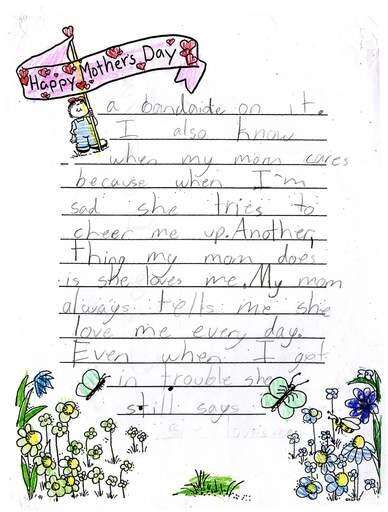 Happy Mother's Day
a bandaide on it.
I also know
when my mom cares
because when I'm
sad she tries to
cheer me up. Another
thing my mom does
is she loves me. My mom
always tells me she
love me every day.
Even when I got
in trouble she
still says